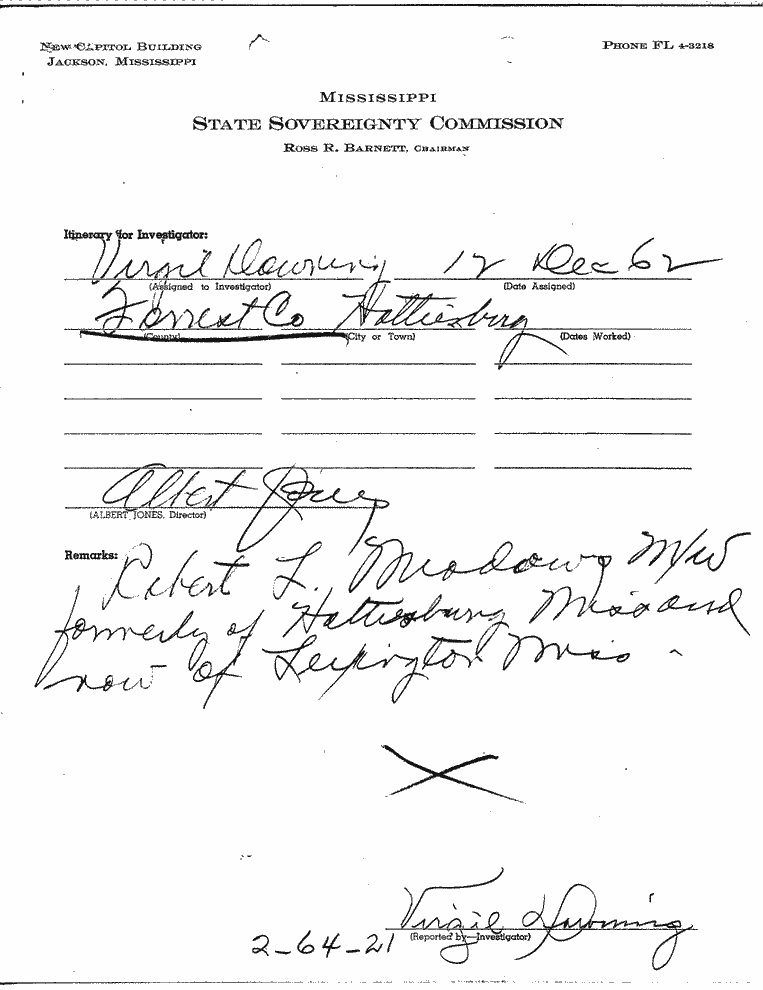 NEW CAPITOL BUILDING
JACKSON, MISSISSIPPI
PHONE FL 4-3218
MISSISSIPPI
STATE SOVEREIGNTY COMMISSION
ROSS R. BARNETT, CHAIRMAN
Itinerary for Investigator:
Virgil Downing 12 Dec 62
(Assigned to Investigator) (Date Assigned)
Forrest Co Hattiesburg
(County) (City or Town) (Dates Worked)
Albert Jones
(ALBERT JONES, Director)
Remarks:
Robert L. Meadows M/W
formerly of Hattiesburg Miss and
now of Lexington Miss
Virgil Downing
(Reported by—Investigator)
2-64-21